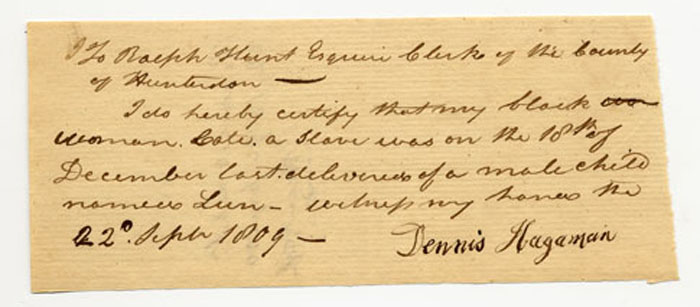 To Ralph Hunt Esquire Clerk of the County
of Hunterdon —
I do hereby certify that my black
woman. Cate. a Slave was on the 18th of
December last. delivered of a male child
named Lun – witness my hand the
22d. Septr 1809 —
Dennis Hagaman